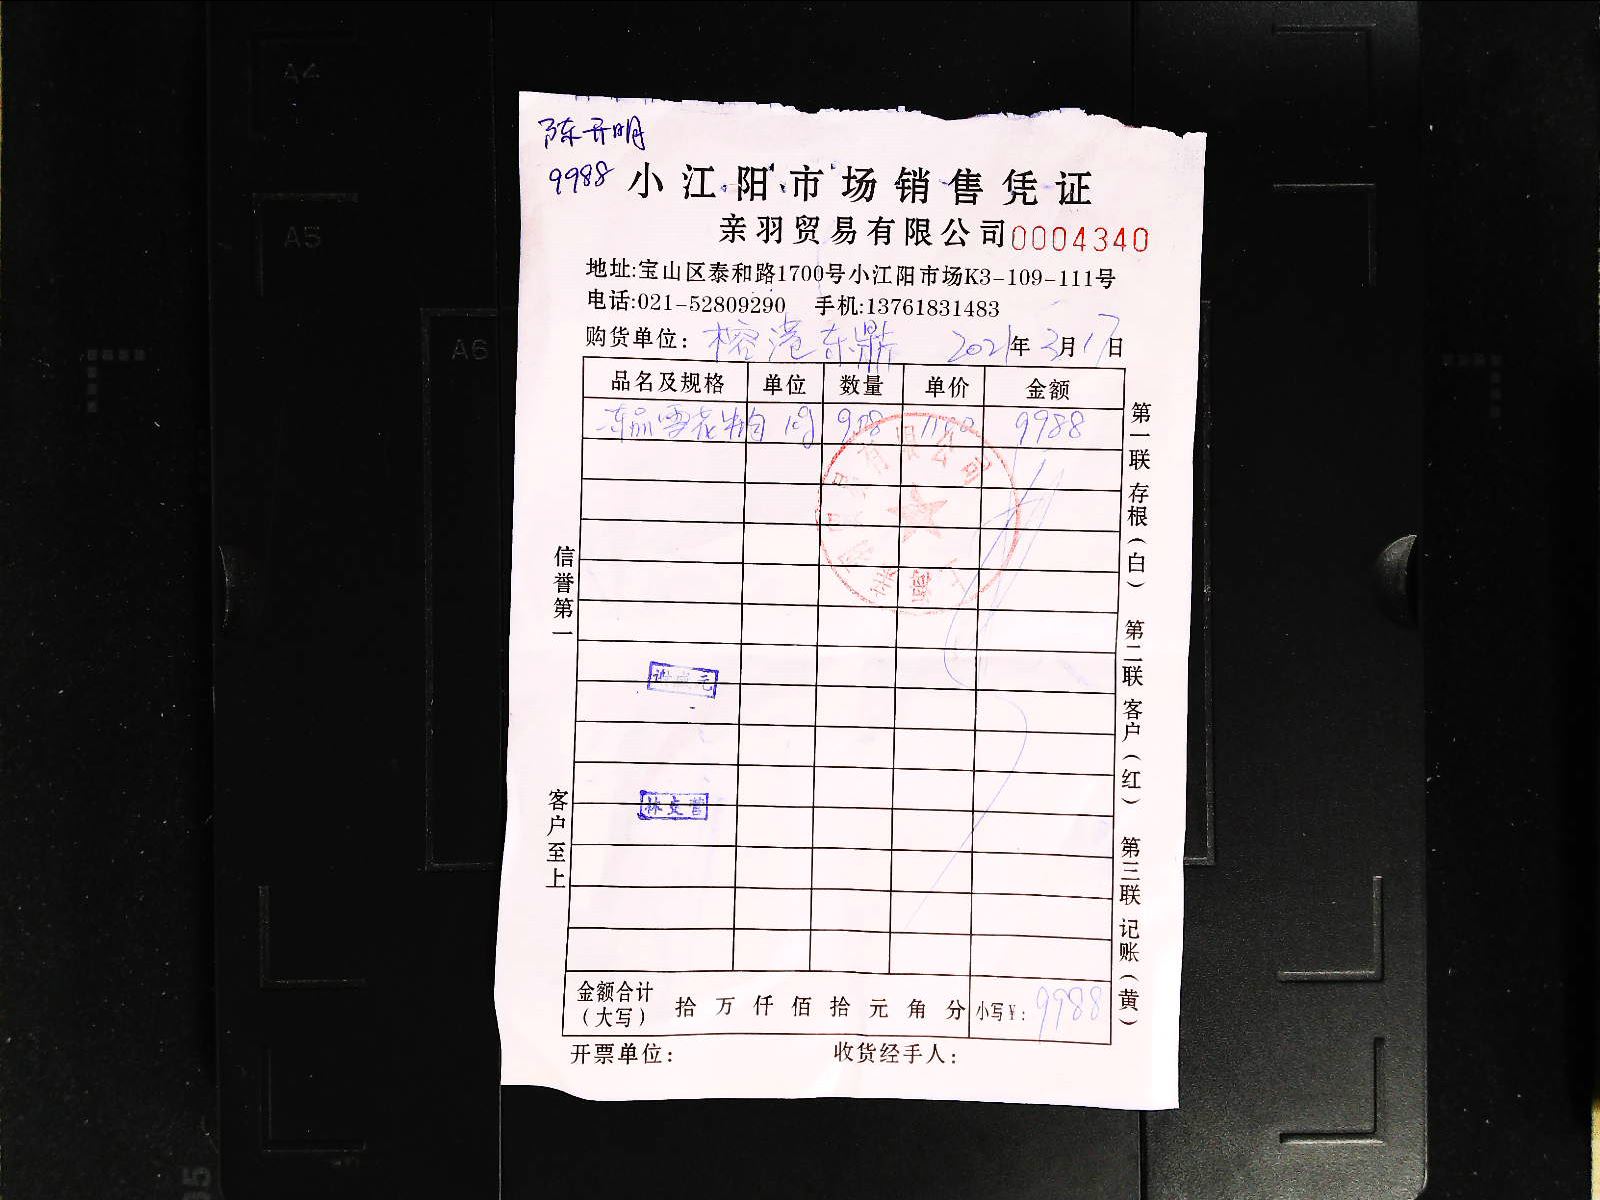 陈开明
9988
小江阳市场销售凭证
亲羽贸易有限公司 0004340
地址:宝山区泰和路1700号小江阳市场K3-109-111号
电话:021-52809290 手机:13761831483
购货单位: 榕港东鼎 2021年3月17日
品名及规格 单位 数量 单价 金额
冻品雪花牛肉 9988
金额合计(大写) 拾 万 仟 佰 拾 元 角 分 小写¥: 9988
开票单位: 收货经手人:
信誉第一
客户至上
第一联 存根(白) 第二联 客户(红) 第三联 记账(黄)
有限公司
A4
A5
A6